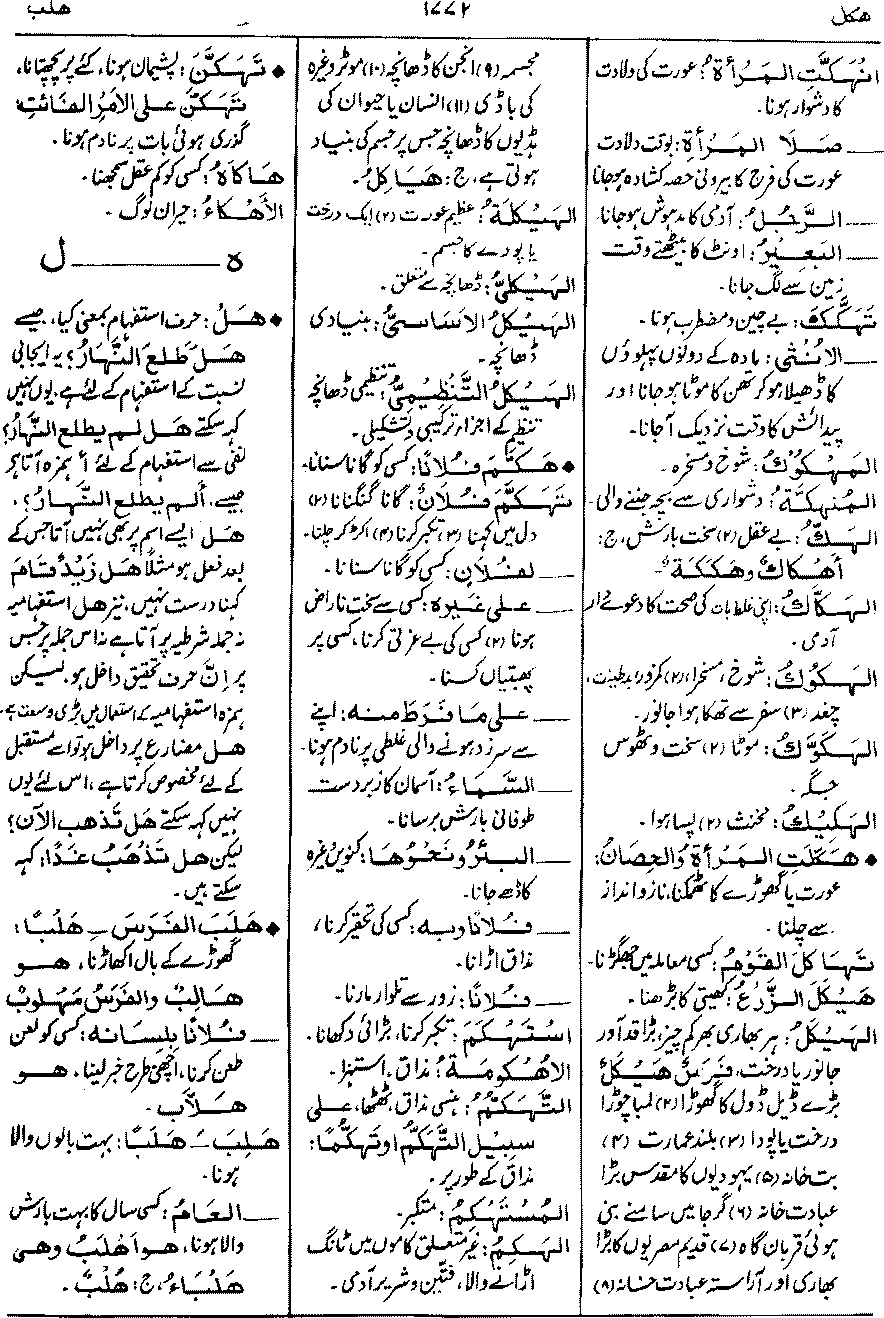 هكل
۱۷۷۲
هلب
انْهَكَّتِ المَرْأَةُ: عورت کی ولادت
کا دشوار ہونا۔
ــــ صَلَا المَرْأَةِ: بوقت ولادت
عورت کی فرج کا بیرونی حصہ کشادہ ہوجانا
ــــ الرَّجُلُ: آدمی کا مدہوش ہوجانا
ــــ البَعِيْرُ: اونٹ کا بیٹھتے وقت
زمین سے لگ جانا۔
تَهَكَّكَ: بے چین و مضطرب ہونا۔
ــــ الأُنْثٰى: مادہ کے دونوں پہلوؤں
کا ڈھیلا ہوکر تھن کا موٹا ہوجانا اور
پیدائش کا وقت نزدیک آجانا۔
المَهْكُوْكُ: شوخ و مسخرہ۔
المُنْهَكَّةُ: دشواری سے بچہ جننے والی۔
الهَكُّ: بے عقل (۲) سخت بارش، ج:
أَهْكَاكٌ وهَكَكَةٌ
الهَكَّاكُ: اپنی غلط بات کی صحت کا دعوےدار
آدمی۔
الهَكُوْكُ: شوخ، مسخرا، (۲) کمزور بدطینت،
چغد (۳) سفر سے تھکا ہوا جانور۔
الهَكَوَّكُ: موٹا (۲) سخت و ٹھوس
جگہ۔
الهَكِيْكُ: مخنث (۲) پسا ہوا۔
♦ هَكَلَتِ المَرْأَةُ والحِصَانُ:
عورت یا گھوڑے کا ٹھمکنا، ناز و انداز
سے چلنا۔
تَهَاكَلَ القَوْمُ: کسی معاملہ میں جھگڑنا۔
هَيْكَلَ الزَّرْعُ: کھیتی کا بڑھنا۔
الهَيْكَلُ: ہر بھاری بھر کم چیز، بڑا قد آور
جانور یا درخت، فَرَسٌ هَيْكَلٌ
بڑے ڈیل ڈول کا گھوڑا (۲) لمبا چوڑا
درخت یا پودا (۳) بلند عمارت (۴)
بت خانہ (۵) یہودیوں کا مقدس بڑا
عبادت خانہ (۶) گرجا میں سامنے بنی
ہوئی قربان گاہ (۷) قدیم مصریوں کا بڑا
بھاری اور آراستہ عبادت خانہ (۸)
مجسمہ (۹) انجن کا ڈھانچہ (۱۰) موٹر وغیرہ
کی باڈی (۱۱) انسان یا حیوان کی
ہڈیوں کا ڈھانچہ جس پر جسم کی بنیاد
ہوتی ہے، ج: هَيَاكِلُ۔
الهَيْكَلَةُ: عظیم عورت (۲) ایک درخت
یا پودے کا جسم۔
الهَيْكَلِيُّ: ڈھانچہ سے متعلق۔
الهَيْكَلُ الأَسَاسِيُّ: بنیادی
ڈھانچہ۔
الهَيْكَلُ التَّنْظِيْمِيُّ: تنظیمی ڈھانچہ
تنظیم کے اجزاء ترکیبی و تشکیلی۔
♦ هَكَّمَ فُلَانًا: کسی کو گانا سنانا۔
تَهَكَّمَ فُلَانٌ: گانا گنگنانا (۲)
دل میں کہنا (۳) تکبر کرنا (۴) اکڑ کر چلنا۔
ــــ لفُلَانٍ: کسی کو گانا سنانا۔
ــــ على غَيْرِه: کسی سے سخت ناراض
ہونا (۲) کسی کی بے عزتی کرنا، کسی پر
پھبتیاں کسنا۔
ــــ على مَا فَرَطَ منه: اپنے
سے سرزد ہونے والی غلطی پر نادم ہونا۔
ــــ السَّمَاءُ: آسمان کا زبردست
طوفانی بارش برسانا۔
ــــ البِئْرُ ونَحْوُهَا: کنویں وغیرہ
کا ڈھ جانا۔
ــــ فُلَانًا وبه: کسی کی تحقیر کرنا،
مذاق اڑانا۔
ــــ فُلَانًا: زور سے تلوار مارنا۔
اسْتَهْكَمَ: تکبر کرنا، بڑائی دکھانا۔
الأُهْكُوْمَةُ: مذاق، استہزا۔
التَّهَكُّمُ: ہنسی مذاق، ٹھٹھا، على
سبيل التَّهَكُّمِ أو تَهَكُّمًا:
مذاق کے طور پر۔
المُسْتَهْكِمُ: متکبر۔
الهَكِمُ: غیر متعلق کاموں میں ٹانگ
اڑانے والا، فتین و شریر آدمی۔
♦ تَهَكَّنَ: پشیمان ہونا، کئے پر پچھتانا،
تَهَكَّنَ على الأَمْرِ الفَائِتِ:
گذری ہوئی بات پر نادم ہونا۔
هَاكَاهُ: کسی کو کم عقل سمجھنا۔
الأَهْكَاءُ: حیران لوگ۔
ه ــــــــ ل
♦ هَلْ: حرف استفہام بمعنی کیا، جیسے
هَلْ طَلَعَ النَّهَارُ؟ یہ ایجابی
نسبت کے استفہام کے لئے ہے، یوں نہیں
کہہ سکتے هَلْ لم يطلع النَّهَارُ؟
نفی سے استفہام کے لئے أ ہمزہ آتا ہے
جیسے، أَلم يطلع النَّهارُ؟۔
هَلْ ایسے اسم پر بھی نہیں آتا جس کے
بعد فعل ہو مثلاً هَلْ زَيْدٌ قَامَ
کہنا درست نہیں، نیز هل استفہامیہ
نہ جملہ شرطیہ پر آتا ہے نہ اس جملہ پر جس
پر إنَّ حرف تحقیق داخل ہو، لیکن
ہمزہ استفہامیہ کے استعمال میں بڑی وسعت ہے۔
هَلْ مضارع پر داخل ہو تو اسے مستقبل
کے لئے مخصوص کرتا ہے، اس لئے یوں
نہیں کہہ سکتے هَل تَذهَب الآن؟
لیکن هَل تَذْهَبُ غَدًا؟ کہہ
سکتے ہیں۔
♦ هَلَبَ الفَرَسَ ــ هَلْبًا:
گھوڑے کے بال اکھاڑنا، هـــو
هَالِبٌ والفَرَسُ مَهْلُوبٌ
ــــ فُلَانًا بِلِسَانه: کسی کو لعن
طعن کرنا، اچھی طرح خبر لینا، هـــو
هَلَّاب۔
هَلِبَ ــَ هَلَبًا: بہت بالوں والا
ہونا۔
ــــ العَامُ: کسی سال کا بہت بارش
والا ہونا، هو أَهْلَبُ وهي
هَلْبَاءُ، ج: هُلْبٌ۔